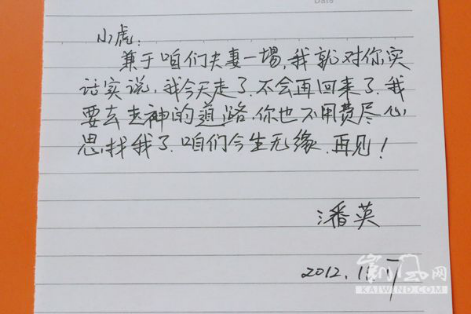 Date
小虎:
兼于咱们夫妻一場,我就对你实
话实说,我今天走了,不会再回来了,我
要去走神的道路,你也不用费尽心
思找我了.咱们今生无缘.再见!
潘英
2012.11.
凯风网
KAIWIND.COM